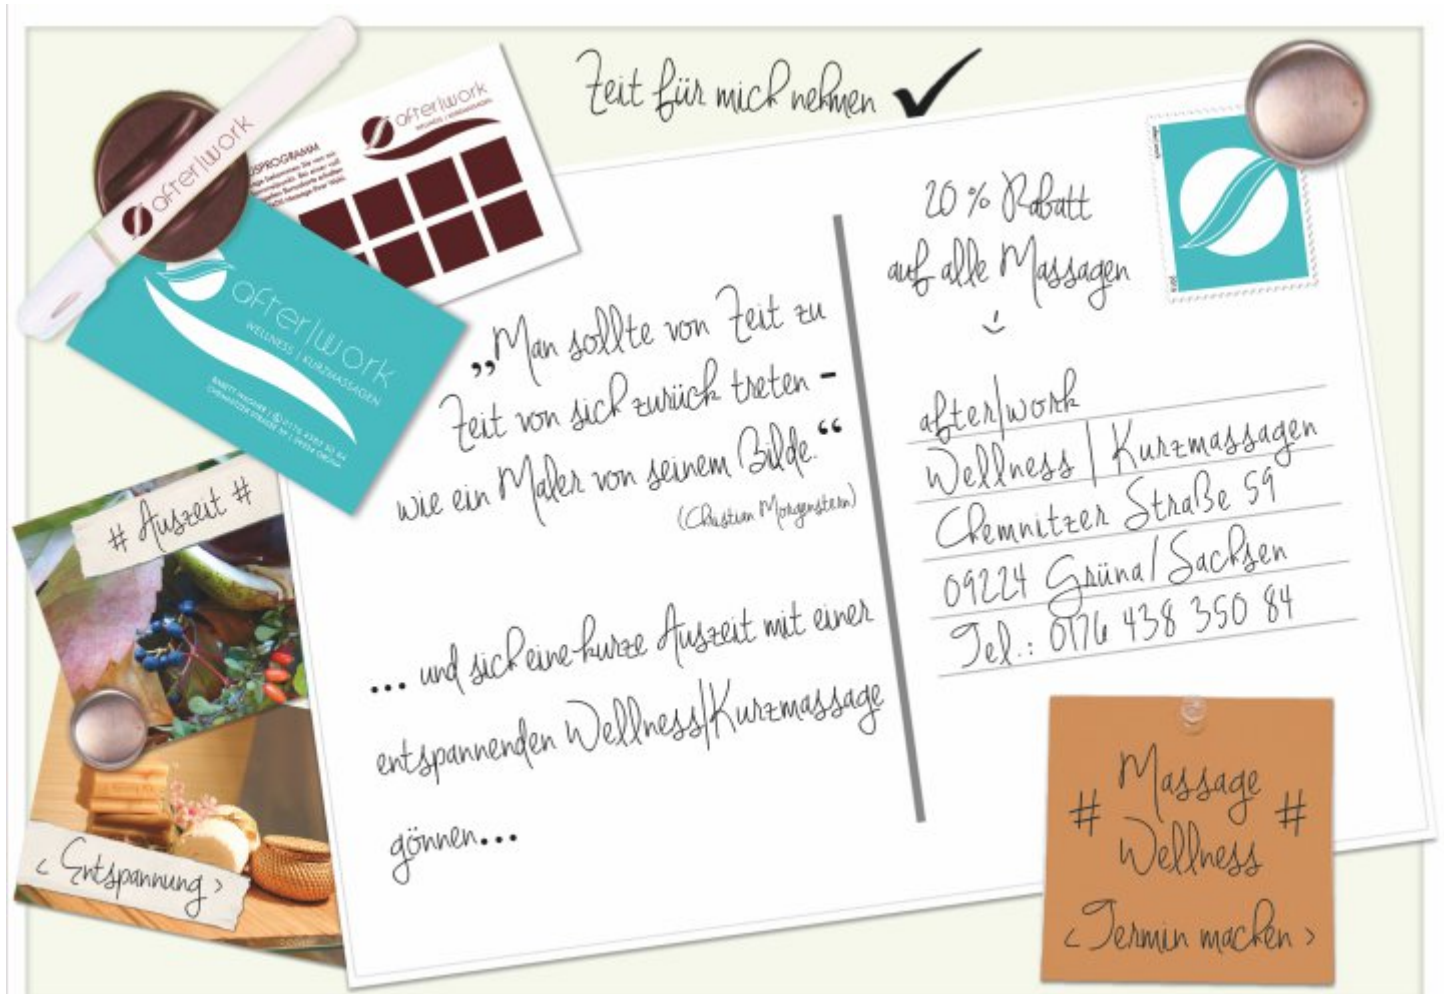 Zeit für mich nehmen
after|work
WELLNESS | KURZMASSAGEN
after|work
after|work
WELLNESS | KURZMASSAGEN
CHEMNITZER STRASSE 59 | 09224 GRÜNA
# Auszeit #
< Entspannung >
„Man sollte von Zeit zu
Zeit von sich zurück treten -
wie ein Maler von seinem Bilde.“
(Christian Morgenstern)
... und sich eine kurze Auszeit mit einer
entspannenden Wellness/Kurzmassage
gönnen...
20 % Rabatt
auf alle Massagen
after/work
Wellness | Kurzmassagen
Chemnitzer Straße 59
09224 Grüna/Sachsen
Tel.: 0176 438 350 84
# Massage #
Wellness
< Termin machen >